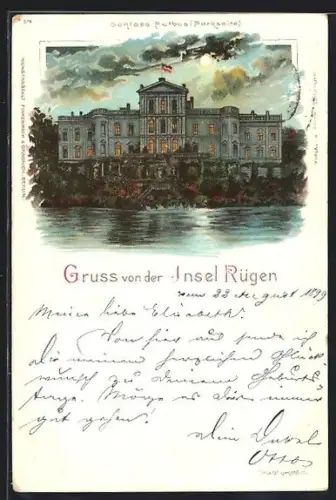 Schloss Putbus (Parkseite).
Gruss von der Insel Rügen
vom 22 August 1899
Meine liebe Elisabeth!
Von hier aus sende ich
Dir meinen herzlichen Glück-
wunsch zu Deinem Geburts-
tage. Möge es Dir immer
gut gehen!
Dein Onkel
Otto